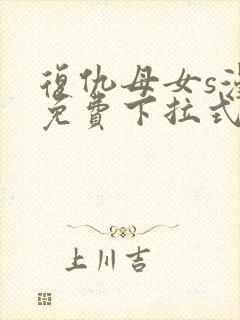 復仇母女s漫
免費下拉式
上川吉